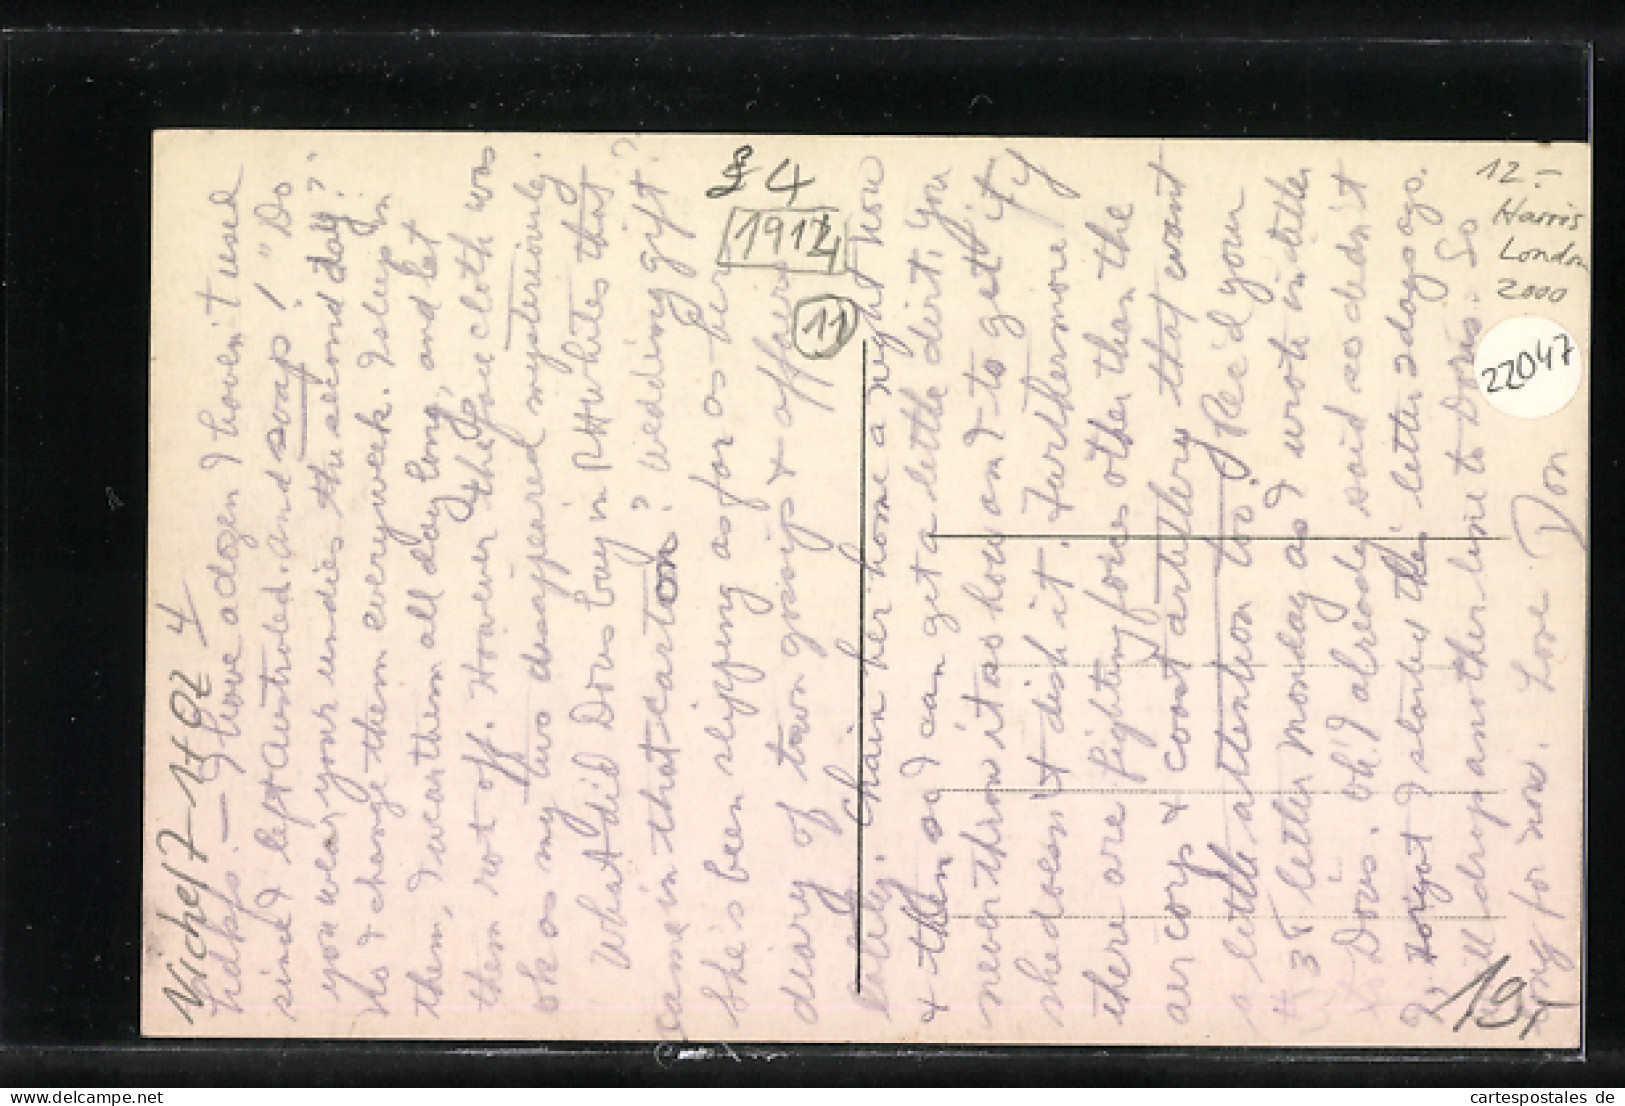 Michel 7-14 92 4
hdkfs. — I have a dozen I haven't used
since I left Australia. And soap! "Do
you wear your undies the second day?"
No I change them every week. I sleep in
them, I wear them all day long, and let
them rot off. However the face cloth was
ok as my two disappeared mysteriously.
What did Doris buy in R H Whites that
came in that carton? Wedding gift?
She's been slipping as far as her
diary of town gossip & affairs
Chain her home a night now
& then so I can get a little dirt. You
never thron it as how and to get it if
she doesn't dish it. Furthermore
there are fighting forces other than the
air corp & coast artillery that want
a little attention too. Rec'd your
#35 letter Monday as I wrote in letter
to Doris. Oh! I already said so didn't
I? Forgot I started this letter 2 days ago.
I'll drop another line to Doris. So
long for now. Love Don
£4
1914
11
12.-
Harris
London
2000
22047
19,-
www.delcampe.net
cartespostales de